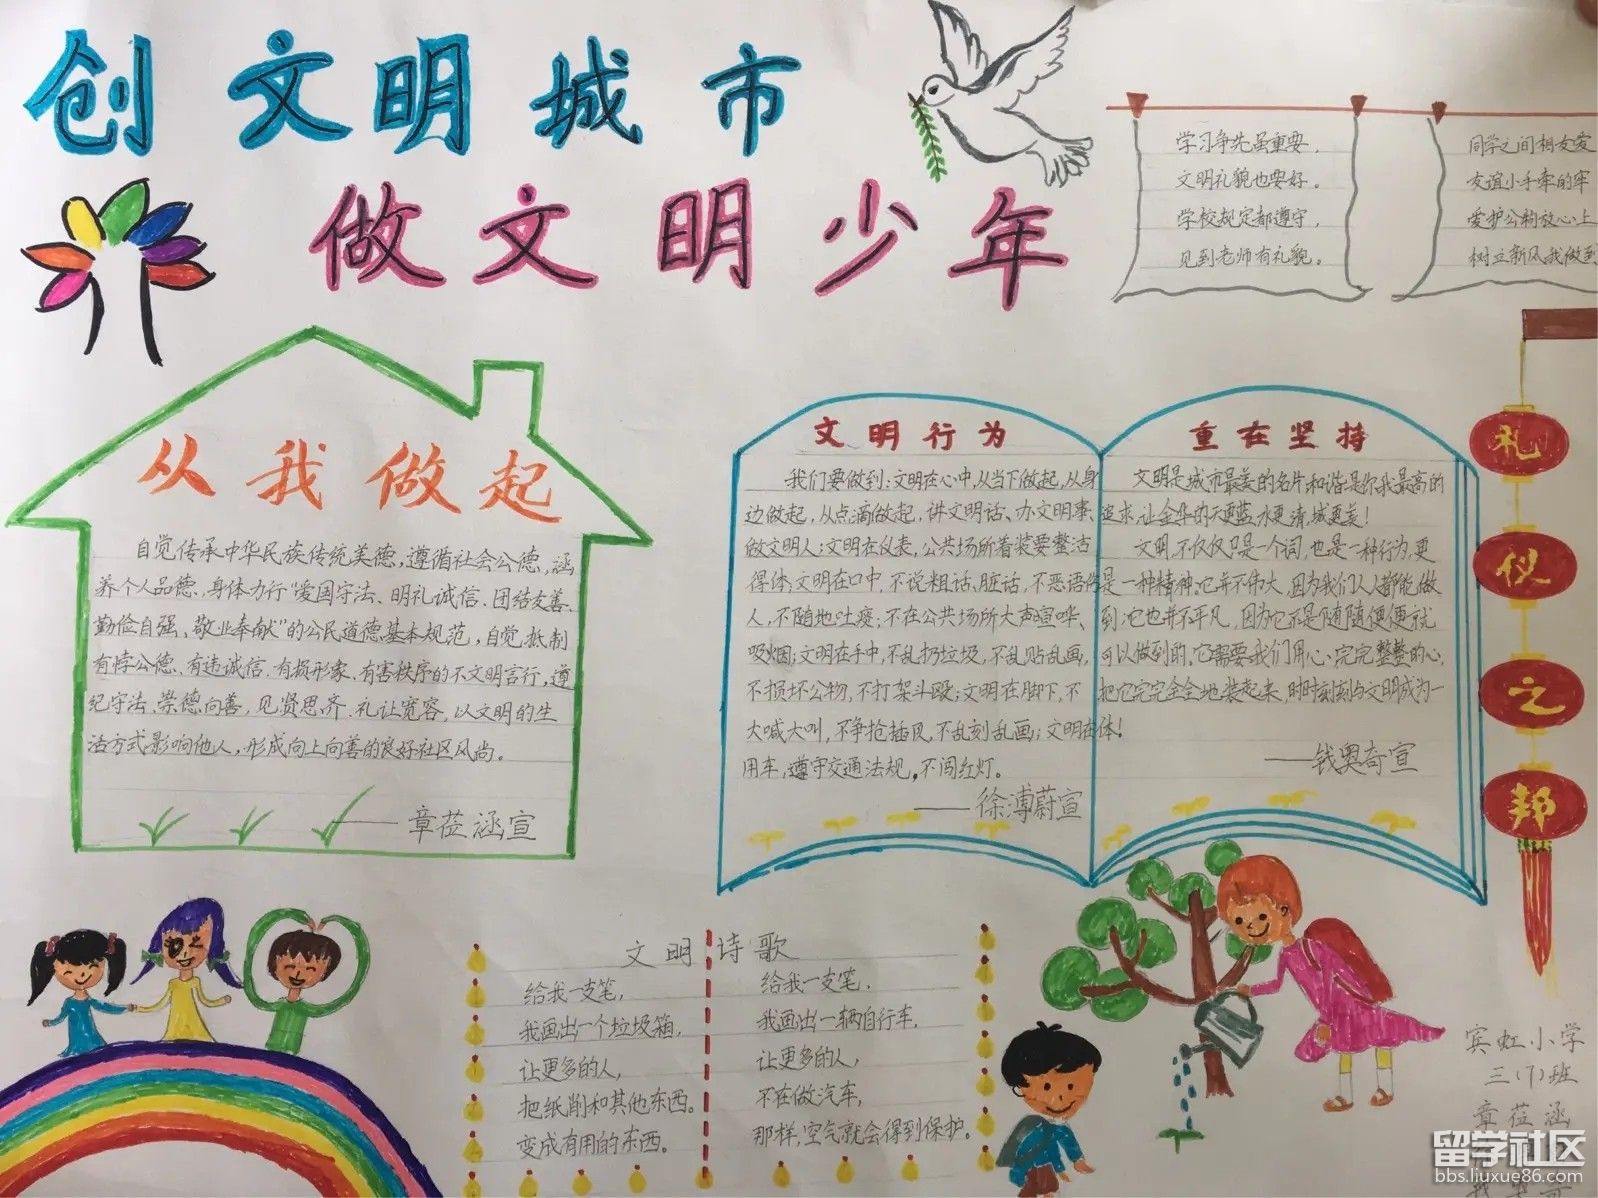 创文明城市
做文明少年
学习争先虽重要，
文明礼貌也要好。
学校规定都遵守，
见到老师有礼貌。
同学之间相友爱
友谊小手牵的牢
爱护公物放心上
树立新风我做到
从我做起
自觉传承中华民族传统美德，遵循社会公德、涵
养个人品德、身体力行“爱国守法、明礼诚信、团结友善、
勤俭自强、敬业奉献”的公民道德基本规范，自觉抵制
有悖公德、有违诚信、有损形象、有害秩序的不文明言行，遵
纪守法、崇德向善，见贤思齐、礼让宽容，以文明的生
活方式影响他人，形成向上向善的良好社区风尚。
——章莅涵宣
文明行为
我们要做到：文明在心中，从当下做起，从身
边做起，从点滴做起，讲文明话、办文明事、
做文明人；文明在仪表，公共场所着装要整洁
得体；文明在口中，不说粗话、脏话，不恶语伤
人，不随地吐痰；不在公共场所大声喧哗、
吸烟；文明在手中，不乱扔垃圾，不乱贴乱画，
不损坏公物，不打架斗殴；文明在脚下，不
大喊大叫，不争抢插队，不乱刻乱画；文明在
用车，遵守交通法规，不闯红灯。
——徐溥蔚宣
重在坚持
文明是城市最美的名片和谐是你我最高的
追求，让金华的天更蓝，水更清，城更美！
文明，不仅仅只是一个词，也是一种行为，更
是一种精神。它并不伟大，因为我们人人都能做
到；它也并不平凡，因为它不是随随便便就
可以做到的，它需要我们用心，完完整整的心，
把它完完全全地装起来，时时刻刻与文明成为一
体！
——钱奥奇宣
礼
仪
之
邦
文明诗歌
给我一支笔，
我画出一个垃圾箱，
让更多的人，
把纸削和其他东西。
变成有用的东西。
给我一支笔，
我画出一辆自行车，
让更多的人，
不在做汽车，
那样，空气就会得到保护。
宾虹小学
三（7）班
章莅涵
留学社区
bbs.liuxue86.com